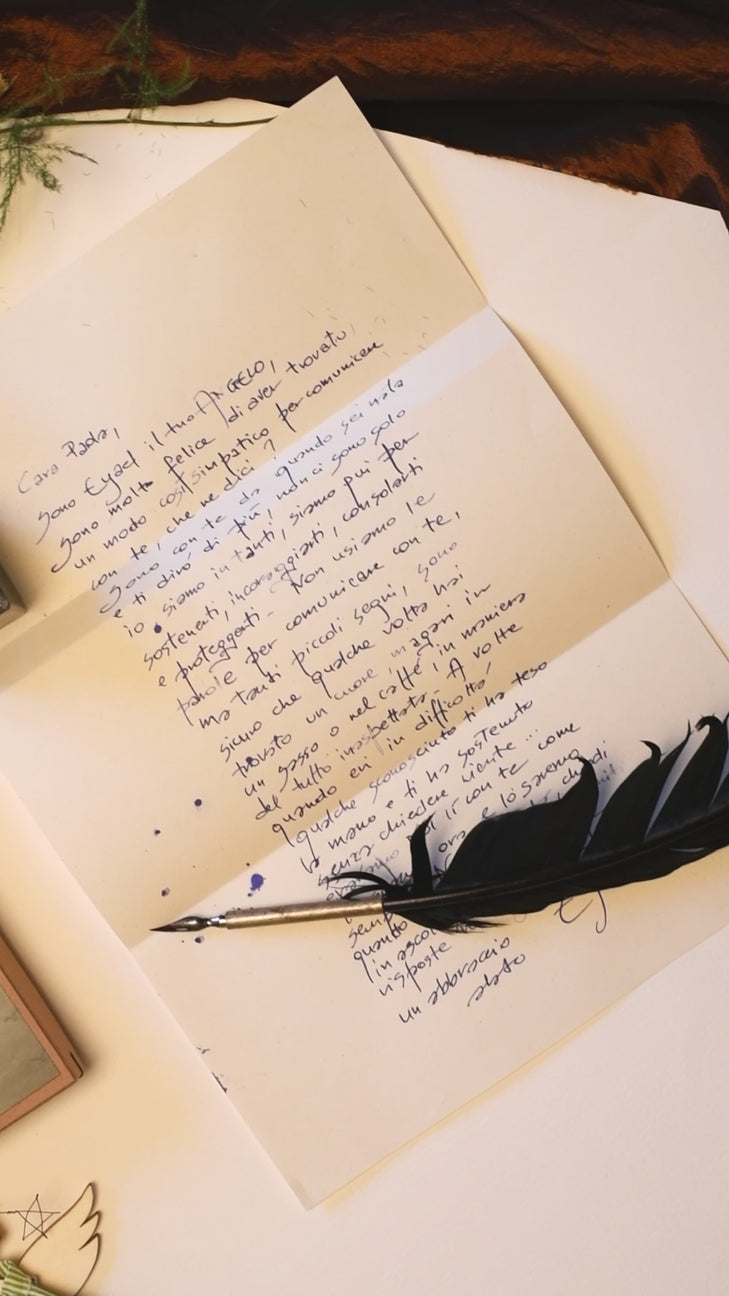 Cara Paola,
sono Eyael il tuo ANGELO,
sono molto felice di aver trovato,
un modo così simpatico per comunicare
con te, che ne dici?
Sono con te da quando sei nata
e ti dirò di più, non ci sono solo
io siamo in tanti, siamo qui per
sostenerti, incoraggiarti, consolarti
e proteggerti - Non usiamo le
parole per comunicare con te,
ma tanti piccoli segni, sono
sicuro che qualche volta hai
trovato un cuore, magari in
un sasso o nel caffè, in maniera
del tutto inaspettata - A volte
quando eri in difficoltà
qualche sconosciuto ti ha teso
la mano e ti ha sostenuto
senza chiedere niente...
lì con te come
ora e lo saremo
chiedi
quanto
in ascol
risposte
un abbraccio
alato